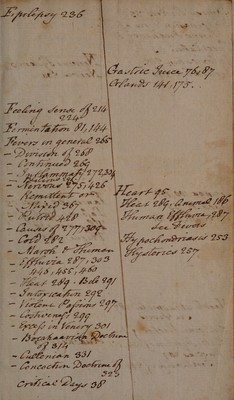 Epilepsy 236
Gastric Juice 76 & 87
Glands 141. 175.
Feeling sense of 214
224
Fermentation 81, 144
Fevers in general 265
- Division of 268
- Continued 269
- Inflammat.y 272, 334
- Nervous 275, 426
Remittent or
- Mixed 367
- Putrid 428
- Causes of 277, 309
- Cold 282
- Marsh & Human
- Effluvia 287, 303
443, 455, 460
- Heat 289. Bile 291
- Intoxication 292
- Violent Passions 297
- Costiveness 299
- Excess in Venery 301
- Boerhaavian Doctrine
of 314
- Cullenian 331
- Concoction Doctrine of
Critical Days 38
Heart 95.
Heat 289. Animal 186
Human Effluvia, 287
see fevers
Hypochondriasis 253
Hysterics 257